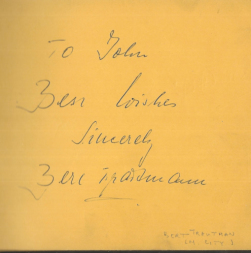 To John
Best Wishes
Sincerely
Bert Trautmann
BERT TRAUTMAN